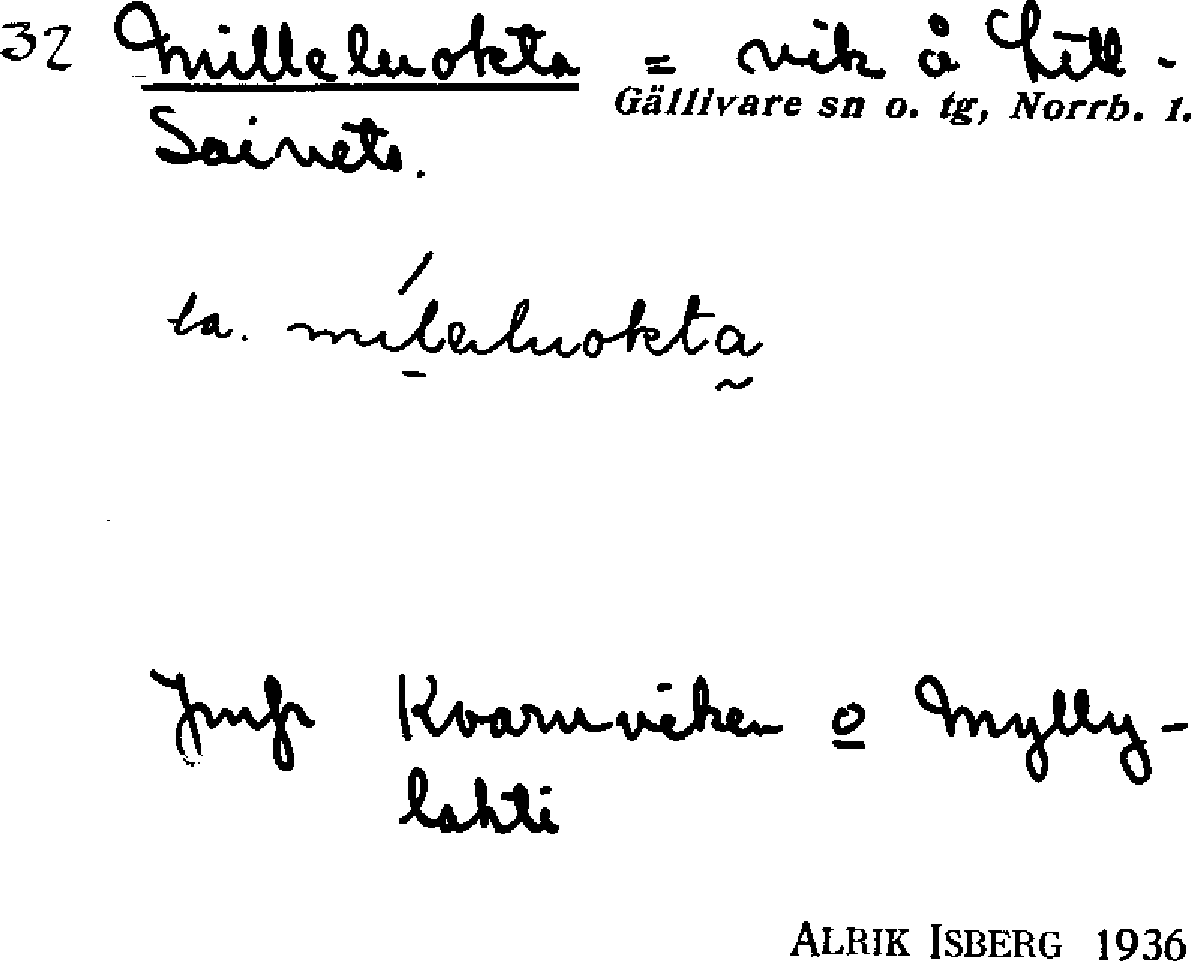 32 Milleluokta = vik å Lill-
Gällivare sn o. tg, Norrb. l.
Saivets.
la. mílaluokta
Jmfr Kvarnviken o Mylly-
lahti
ALRIK ISBERG 1936